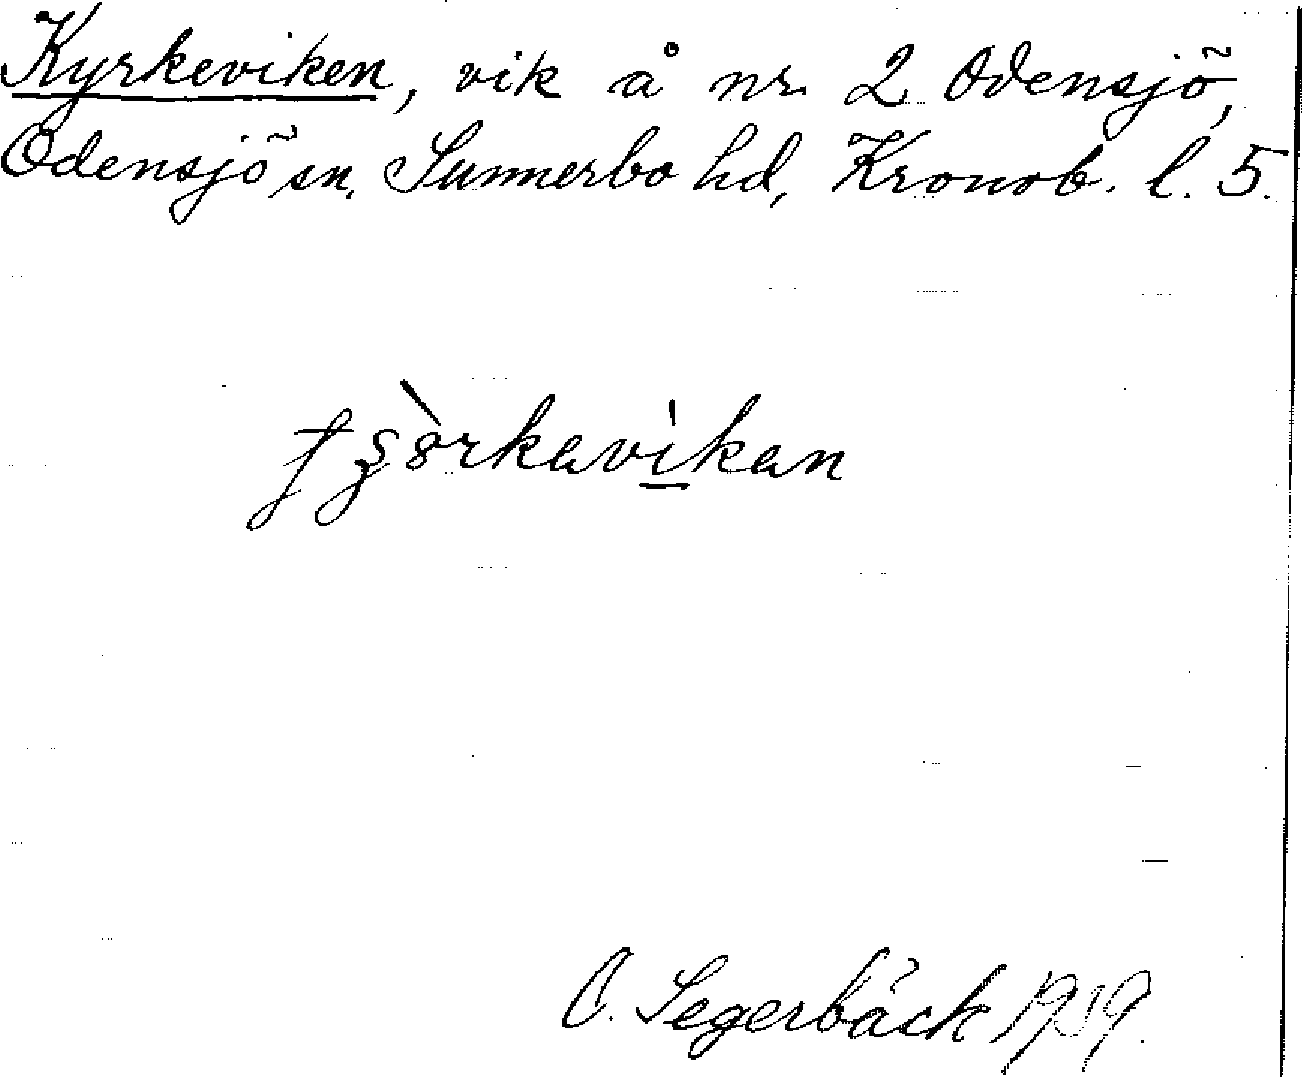 Kyrkeviken, vik å nr 2 Odensjö,
Odensjö sn, Sunnerbo hd, Kronob. l. 5.
O. Segerbäck 1919.